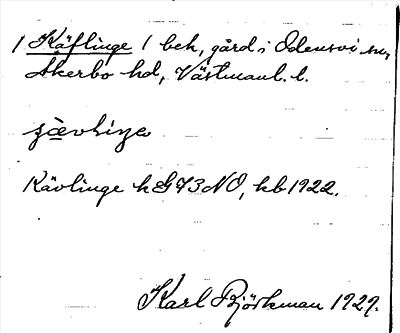 1 Käflinge 1 bek, gård i Odensvi sn,
Åkerbo hd, Västmanl. l.
Kävlinge hG73NO, kb 1922.
Karl Björkman 1929.